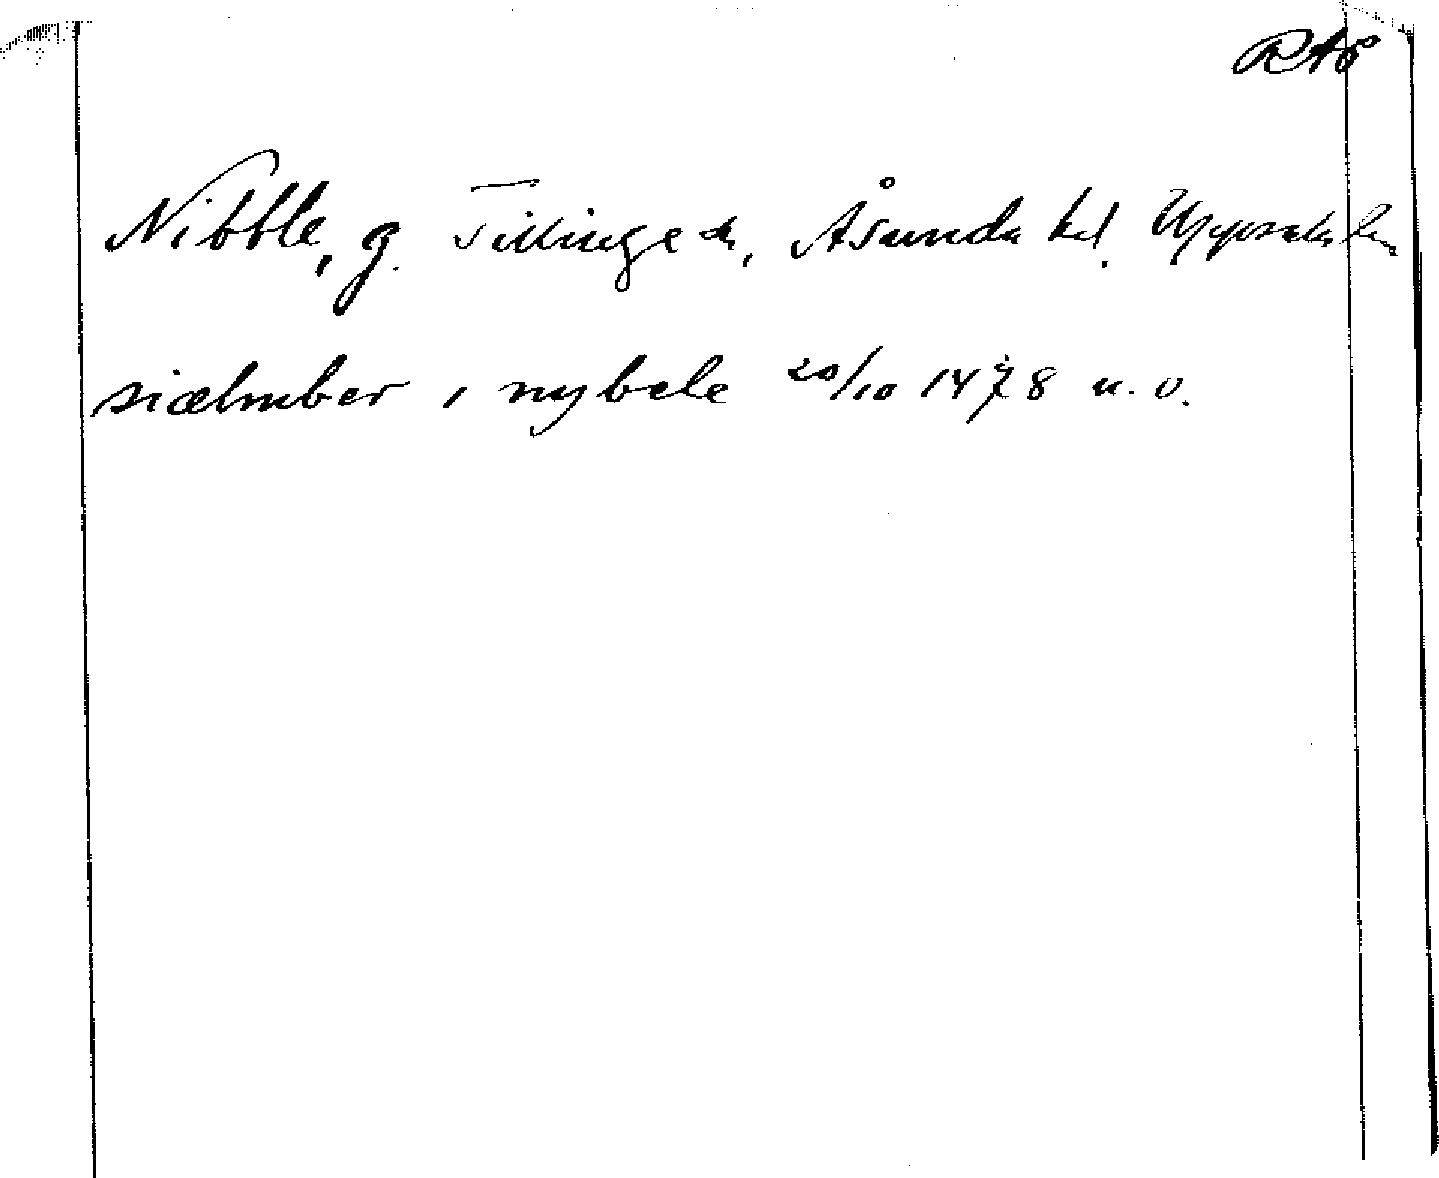 RAp
Nibble, g. Tillinge sn, Åsunda hd. Uppsala län
siælmber i nybele 20/10 1478 u. o.